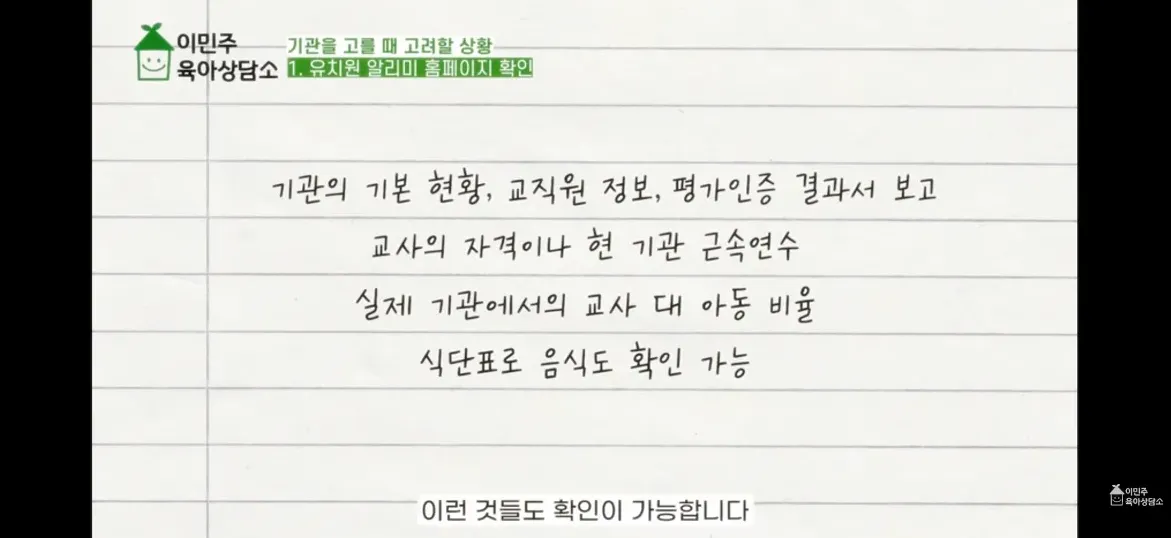 이민주
육아상담소
기관을 고를 때 고려할 상황
1. 유치원 알리미 홈페이지 확인
기관의 기본 현황, 교직원 정보, 평가인증 결과서 보고
교사의 자격이나 현 기관 근속연수
실제 기관에서의 교사 대 아동 비율
식단표로 음식도 확인 가능
이런 것들도 확인이 가능합니다
이민주
육아상담소